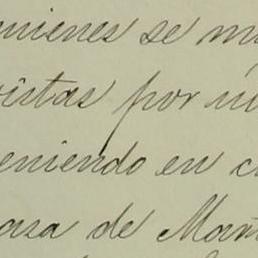 quienes se m
vistas por un
eniendo en c
casa de Man